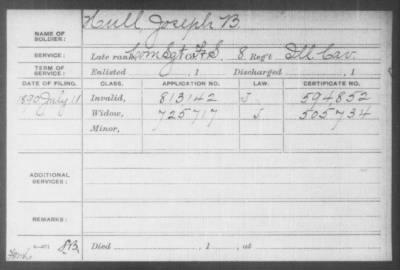 NAME OF SOLDIER: Hull Joseph B
SERVICE: Late rank, Com Sgt F&S, 8 Reg't Ill Cav.
TERM OF SERVICE: Enlisted , 1 Discharged , 1
DATE OF FILING. CLASS. APPLICATION NO. LAW. CERTIFICATE NO.
1890 July 11 Invalid, 813142 J 594852
Widow, 725717 J. 505734
Minor,
ADDITIONAL SERVICES:
REMARKS:
Died , 1 , at